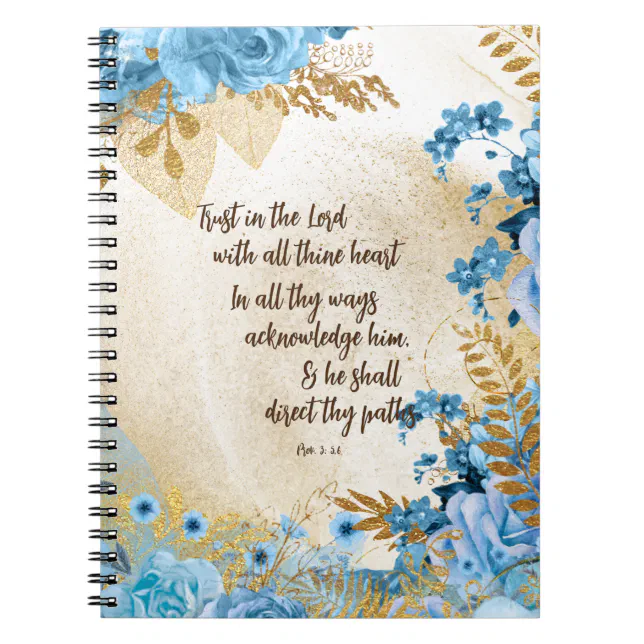 Trust in the Lord
with all thine heart
In all thy ways
acknowledge him,
& he shall
direct thy paths.
Prov. 3: 5,6